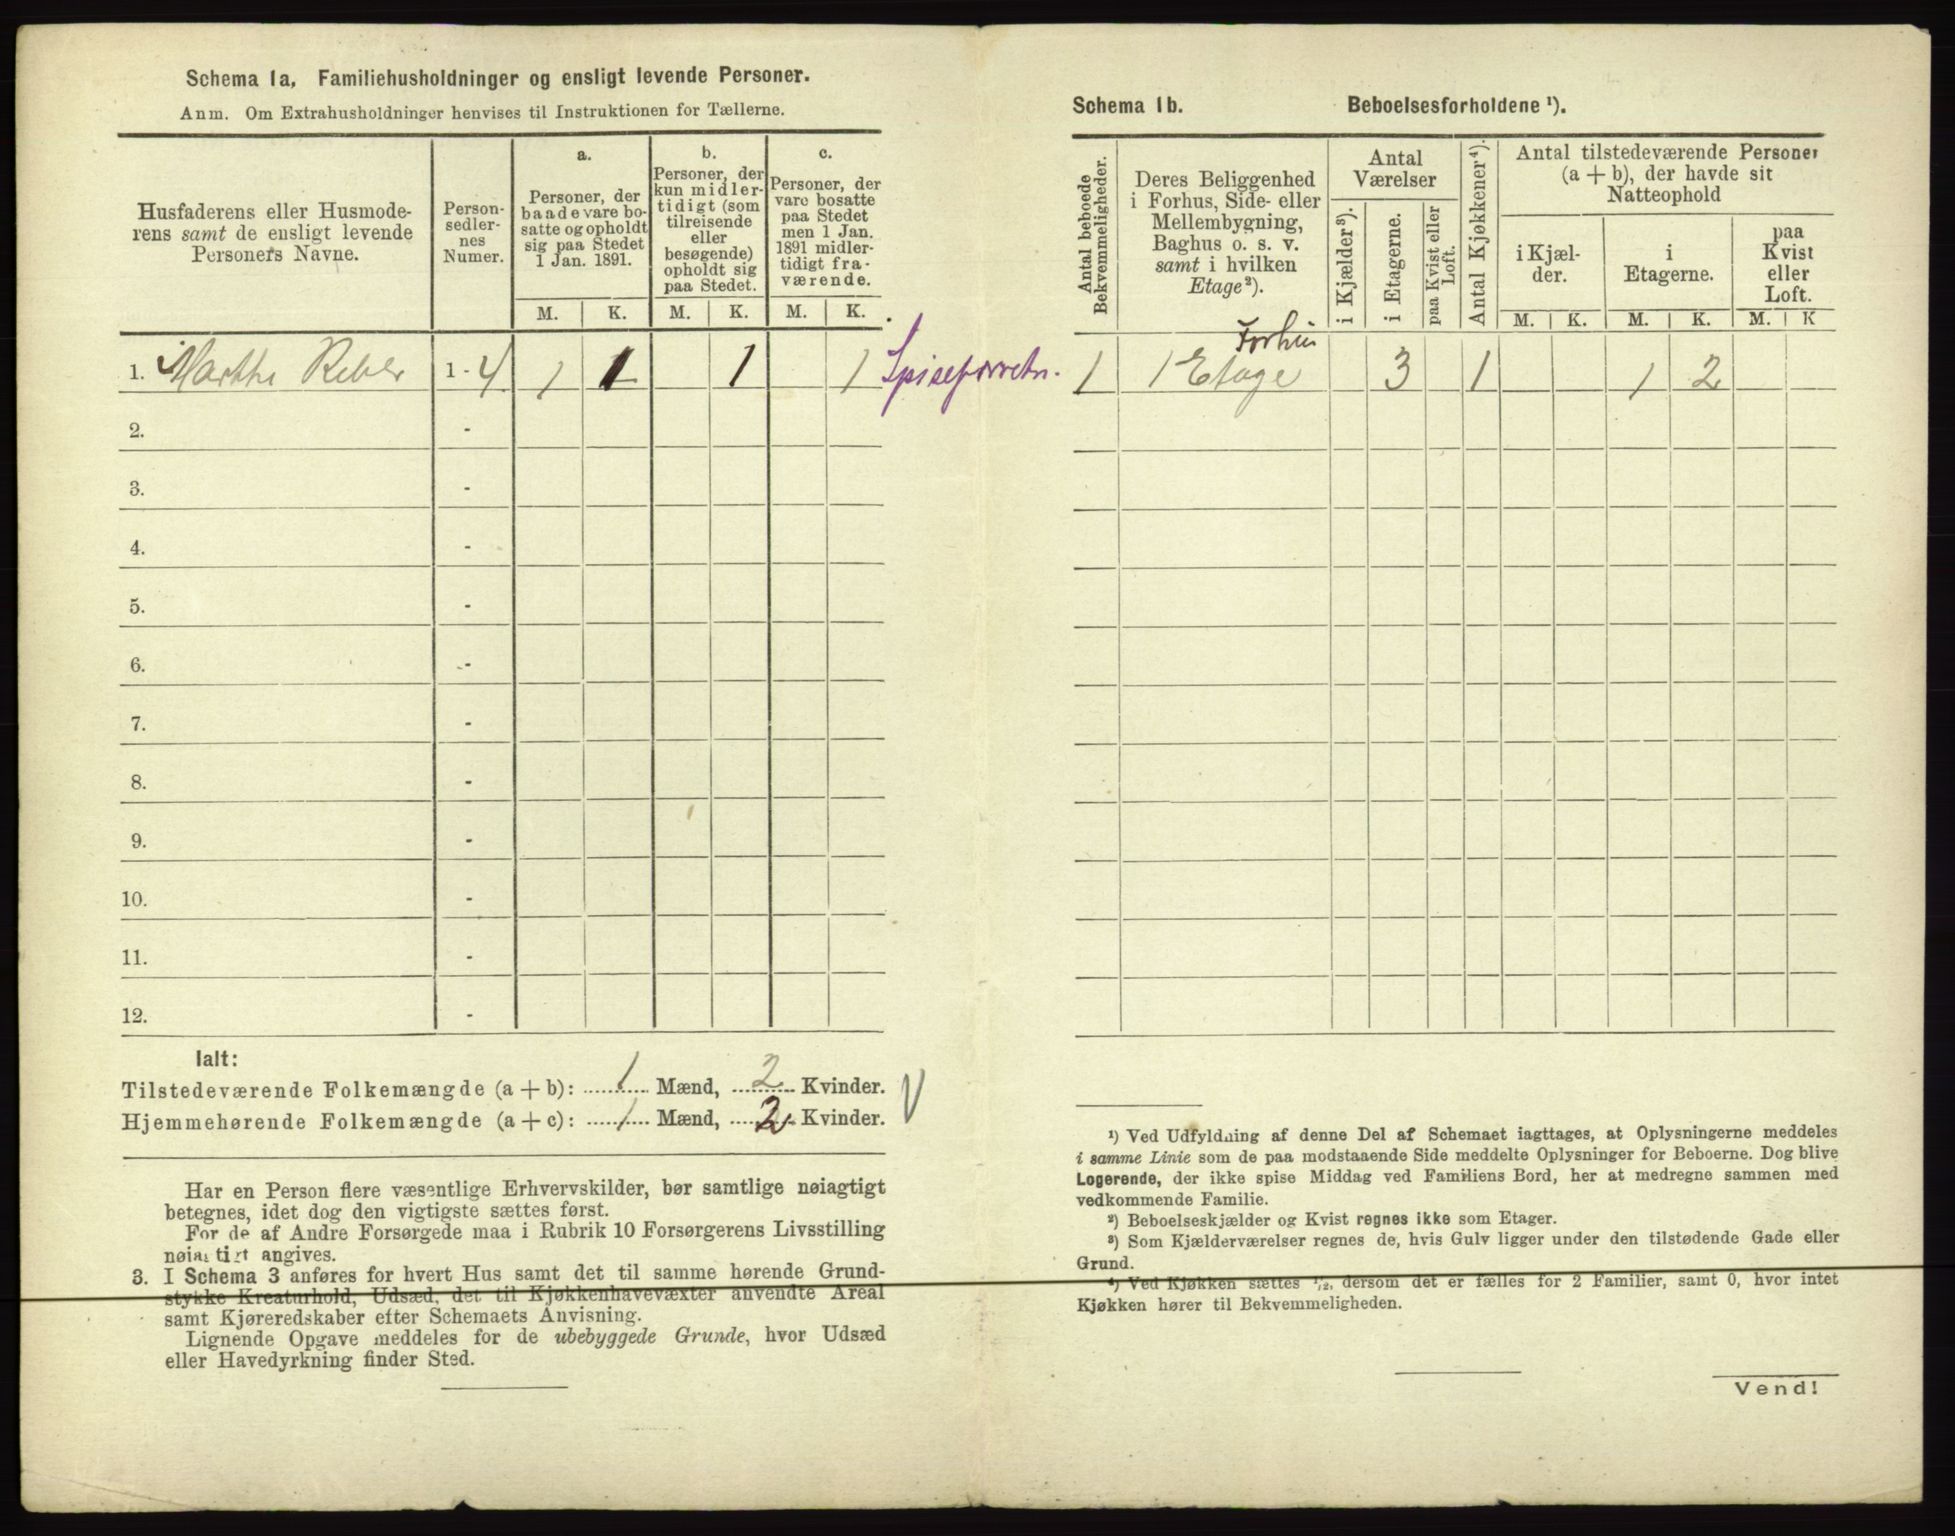 Schema 1a, Familiehusholdninger og ensligt levende Personer.
Anm. Om Extrahusholdninger henvises til Instruktionen for Tællerne.
Husfaderens eller Husmode-
rens samt de ensligt levende
Personers Navne.
Person-
sedler-
nes
Numer.
a.
Personer, der
baade vare bo-
satte og opholdt
sig paa Stedet
1 Jan. 1891.
b.
Personer, der
kun midler-
tidigt (som
tilreisende
eller
besøgende)
opholdt sig
paa Stedet.
c.
Personer, der
vare bosatte
paa Stedet
men 1 Jan.
1891 midler-
tidigt fra-
værende.
M. K. M. K. M. K.
1. Marthe Reber 1 - 4 1 1 1 1 Spiseforretn.
2. -
3. -
4. -
5. -
6. -
7. -
8. -
9. -
10. -
11. -
12. -
Ialt:
Tilstedeværende Folkemængde (a + b): 1 Mænd, 2 Kvinder.
Hjemmehørende Folkemængde (a + c): 1 Mænd, 2 Kvinder.
Har en Person flere væsentlige Erhvervskilder, bør samtlige nøiagtigt
betegnes, idet dog den vigtigste sættes først.
For de af Andre Forsørgede maa i Rubrik 10 Forsørgerens Livsstilling
nøiagtigt angives.
3. I Schema 3 anføres for hvert Hus samt det til samme hørende Grund-
stykke Kreaturhold, Udsæd, det til Kjøkkenhavevæxter anvendte Areal
samt Kjøreredskaber efter Schemaets Anvisning.
Lignende Opgave meddeles for de ubebyggede Grunde, hvor Udsæd
eller Havedyrkning finder Sted.
Schema 1b. Beboelsesforholdene ¹).
Antal beboede
Bekvemmeligheder.
Deres Beliggenhed
i Forhus, Side- eller
Mellembygning,
Baghus o. s. v.
samt i hvilken
Etage²).
Antal
Værelser
i Kjælder³).
i Etagerne.
paa Kvist eller
Loft.
Antal Kjøkkener⁴).
Antal tilstedeværende Personer
(a + b), der havde sit
Natteophold
i Kjæl-
der.
i
Etagerne.
paa
Kvist
eller
Loft.
M. K. M. K. M. K
Forhus
1 1 Etage 3 1 1 2
¹) Ved Udfyldning af denne Del af Schemaet iagttages, at Oplysningerne meddeles
i samme Linie som de paa modstaaende Side meddelte Oplysninger for Beboerne. Dog blive
Logerende, der ikke spise Middag ved Familiens Bord, her at medregne sammen med
vedkommende Familie.
²) Beboelseskjælder og Kvist regnes ikke som Etager.
³) Som Kjælderværelser regnes de, hvis Gulv ligger under den tilstødende Gade eller
Grund.
⁴) Ved Kjøkken sættes ¹/₂, dersom det er fælles for 2 Familier, samt 0, hvor intet
Kjøkken hører til Bekvemmeligheden.
Vend!